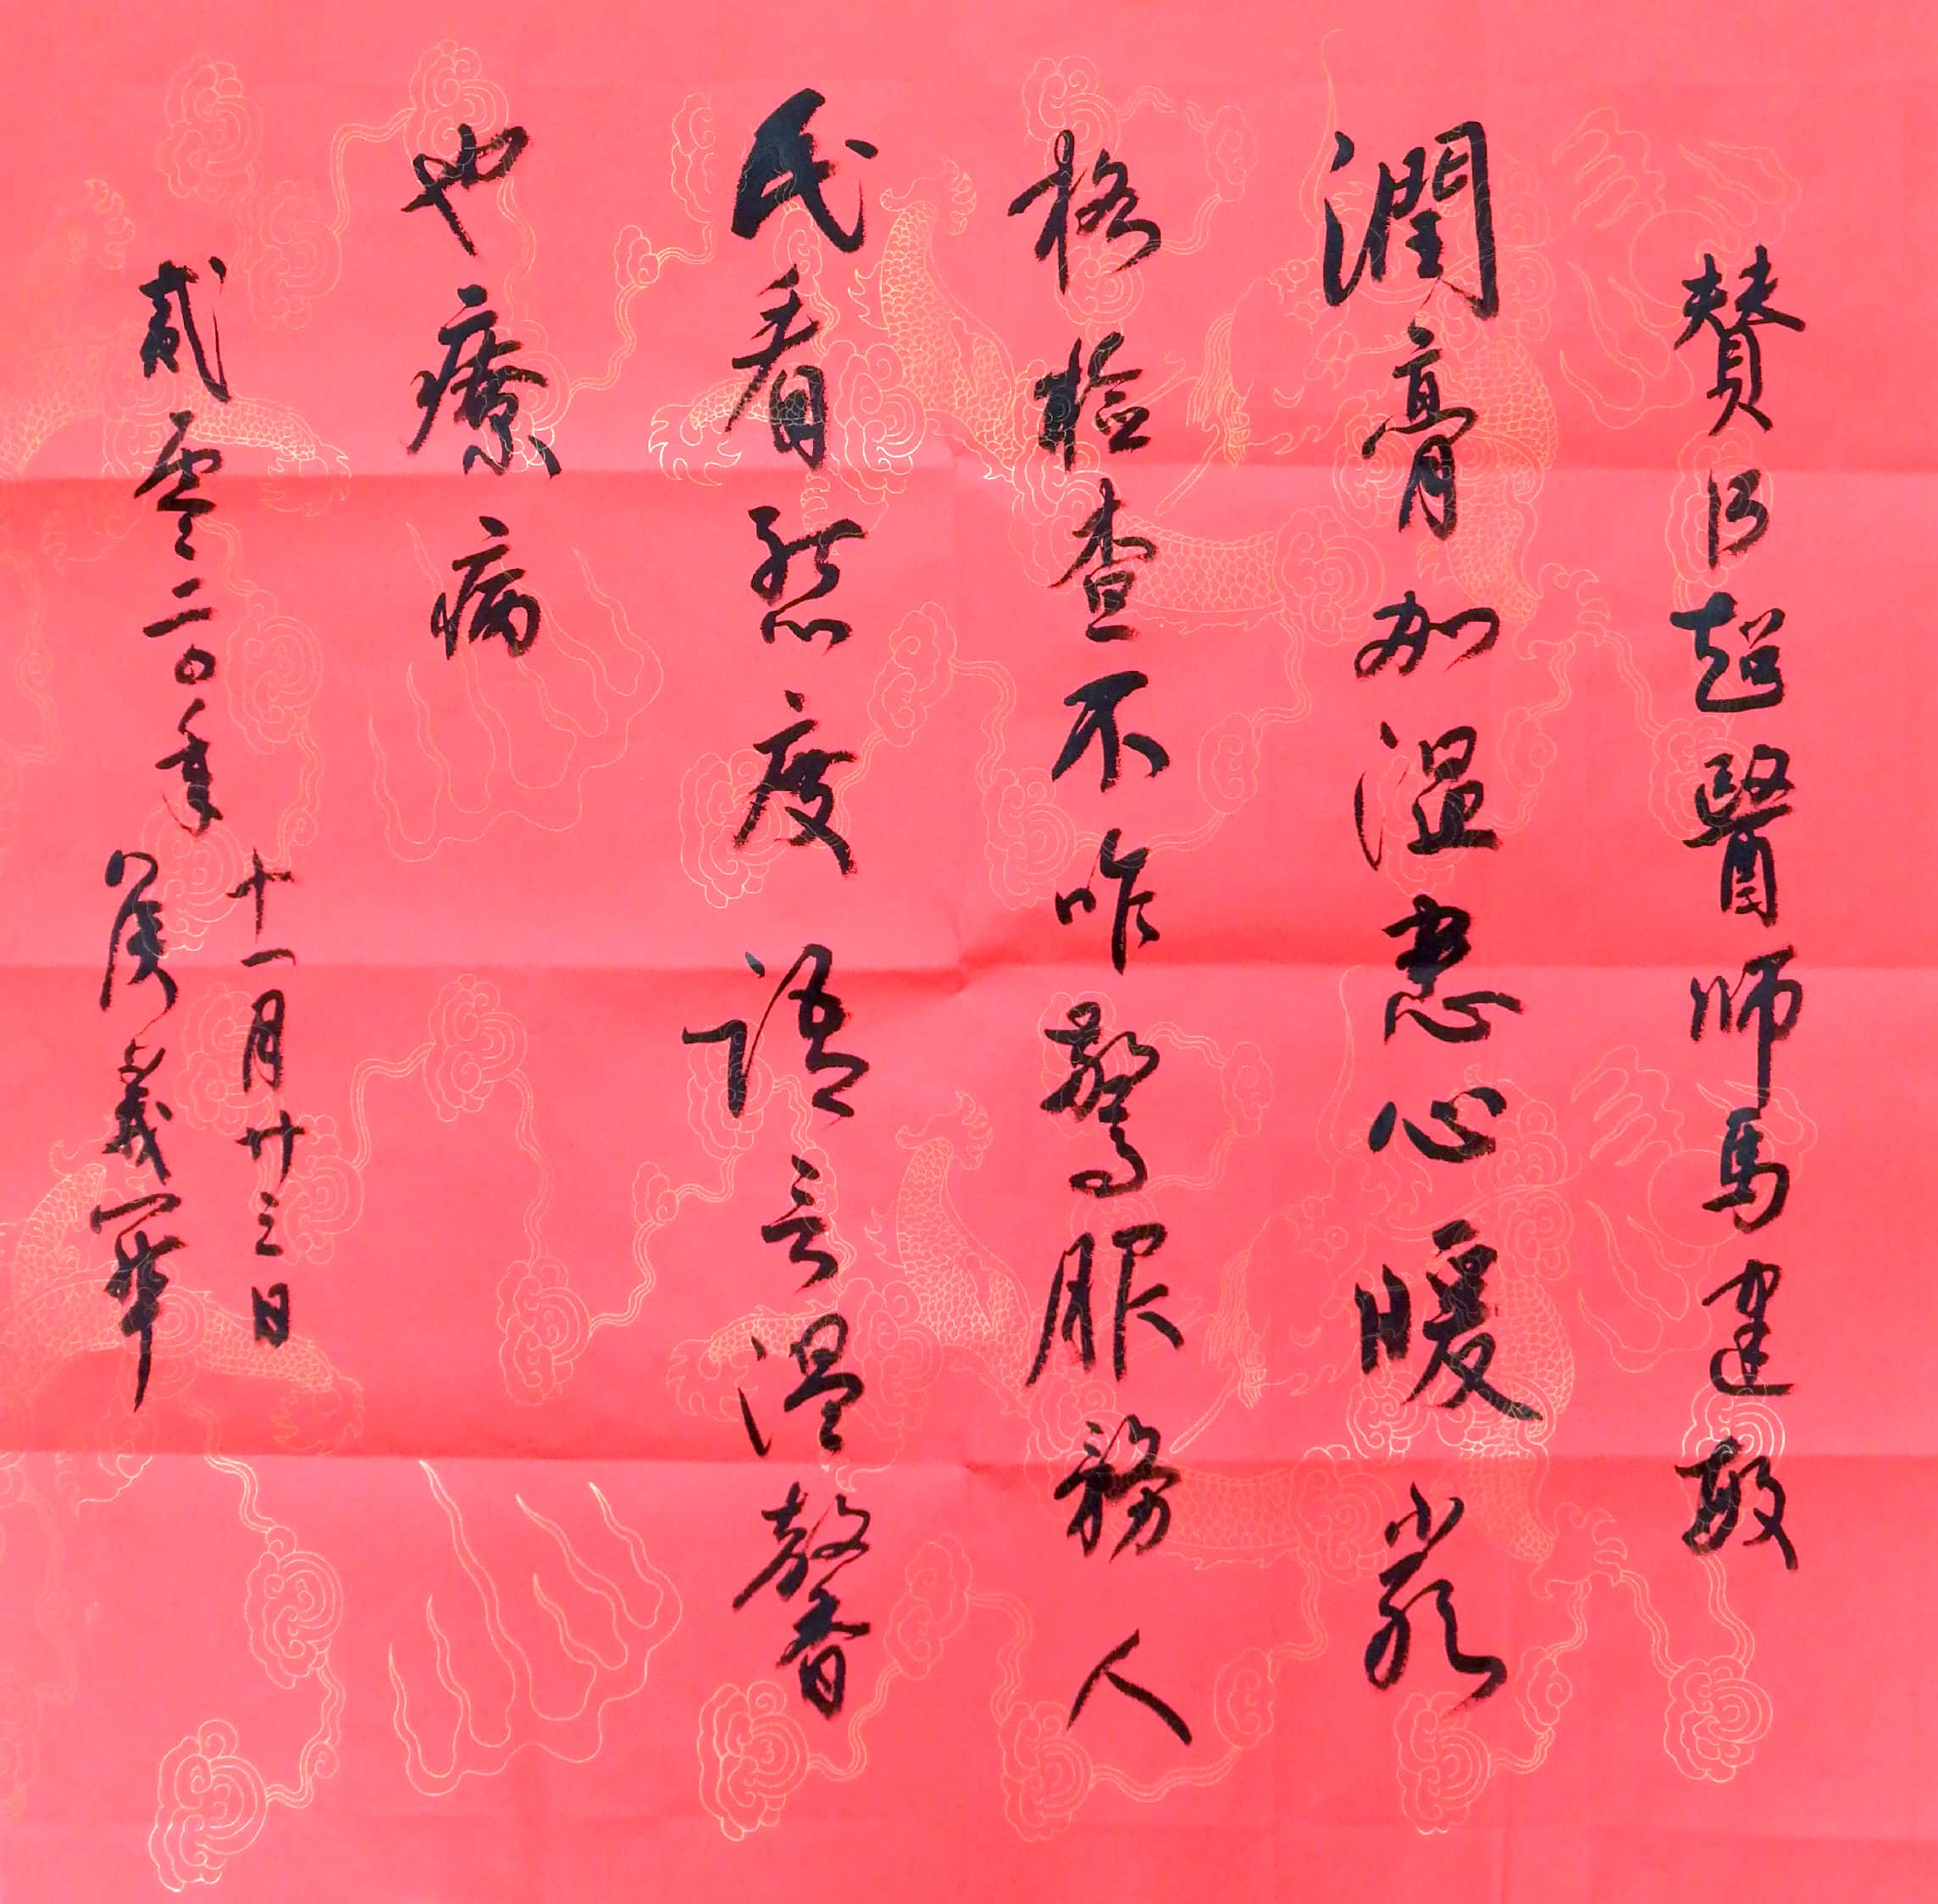 贊B超醫師馬建敏
潤膏加溫患心暖嚴
格檢查不咋驚服務人
民看態度語言溫馨
也療病
貳零二0年
十一月廿三日
侯義军